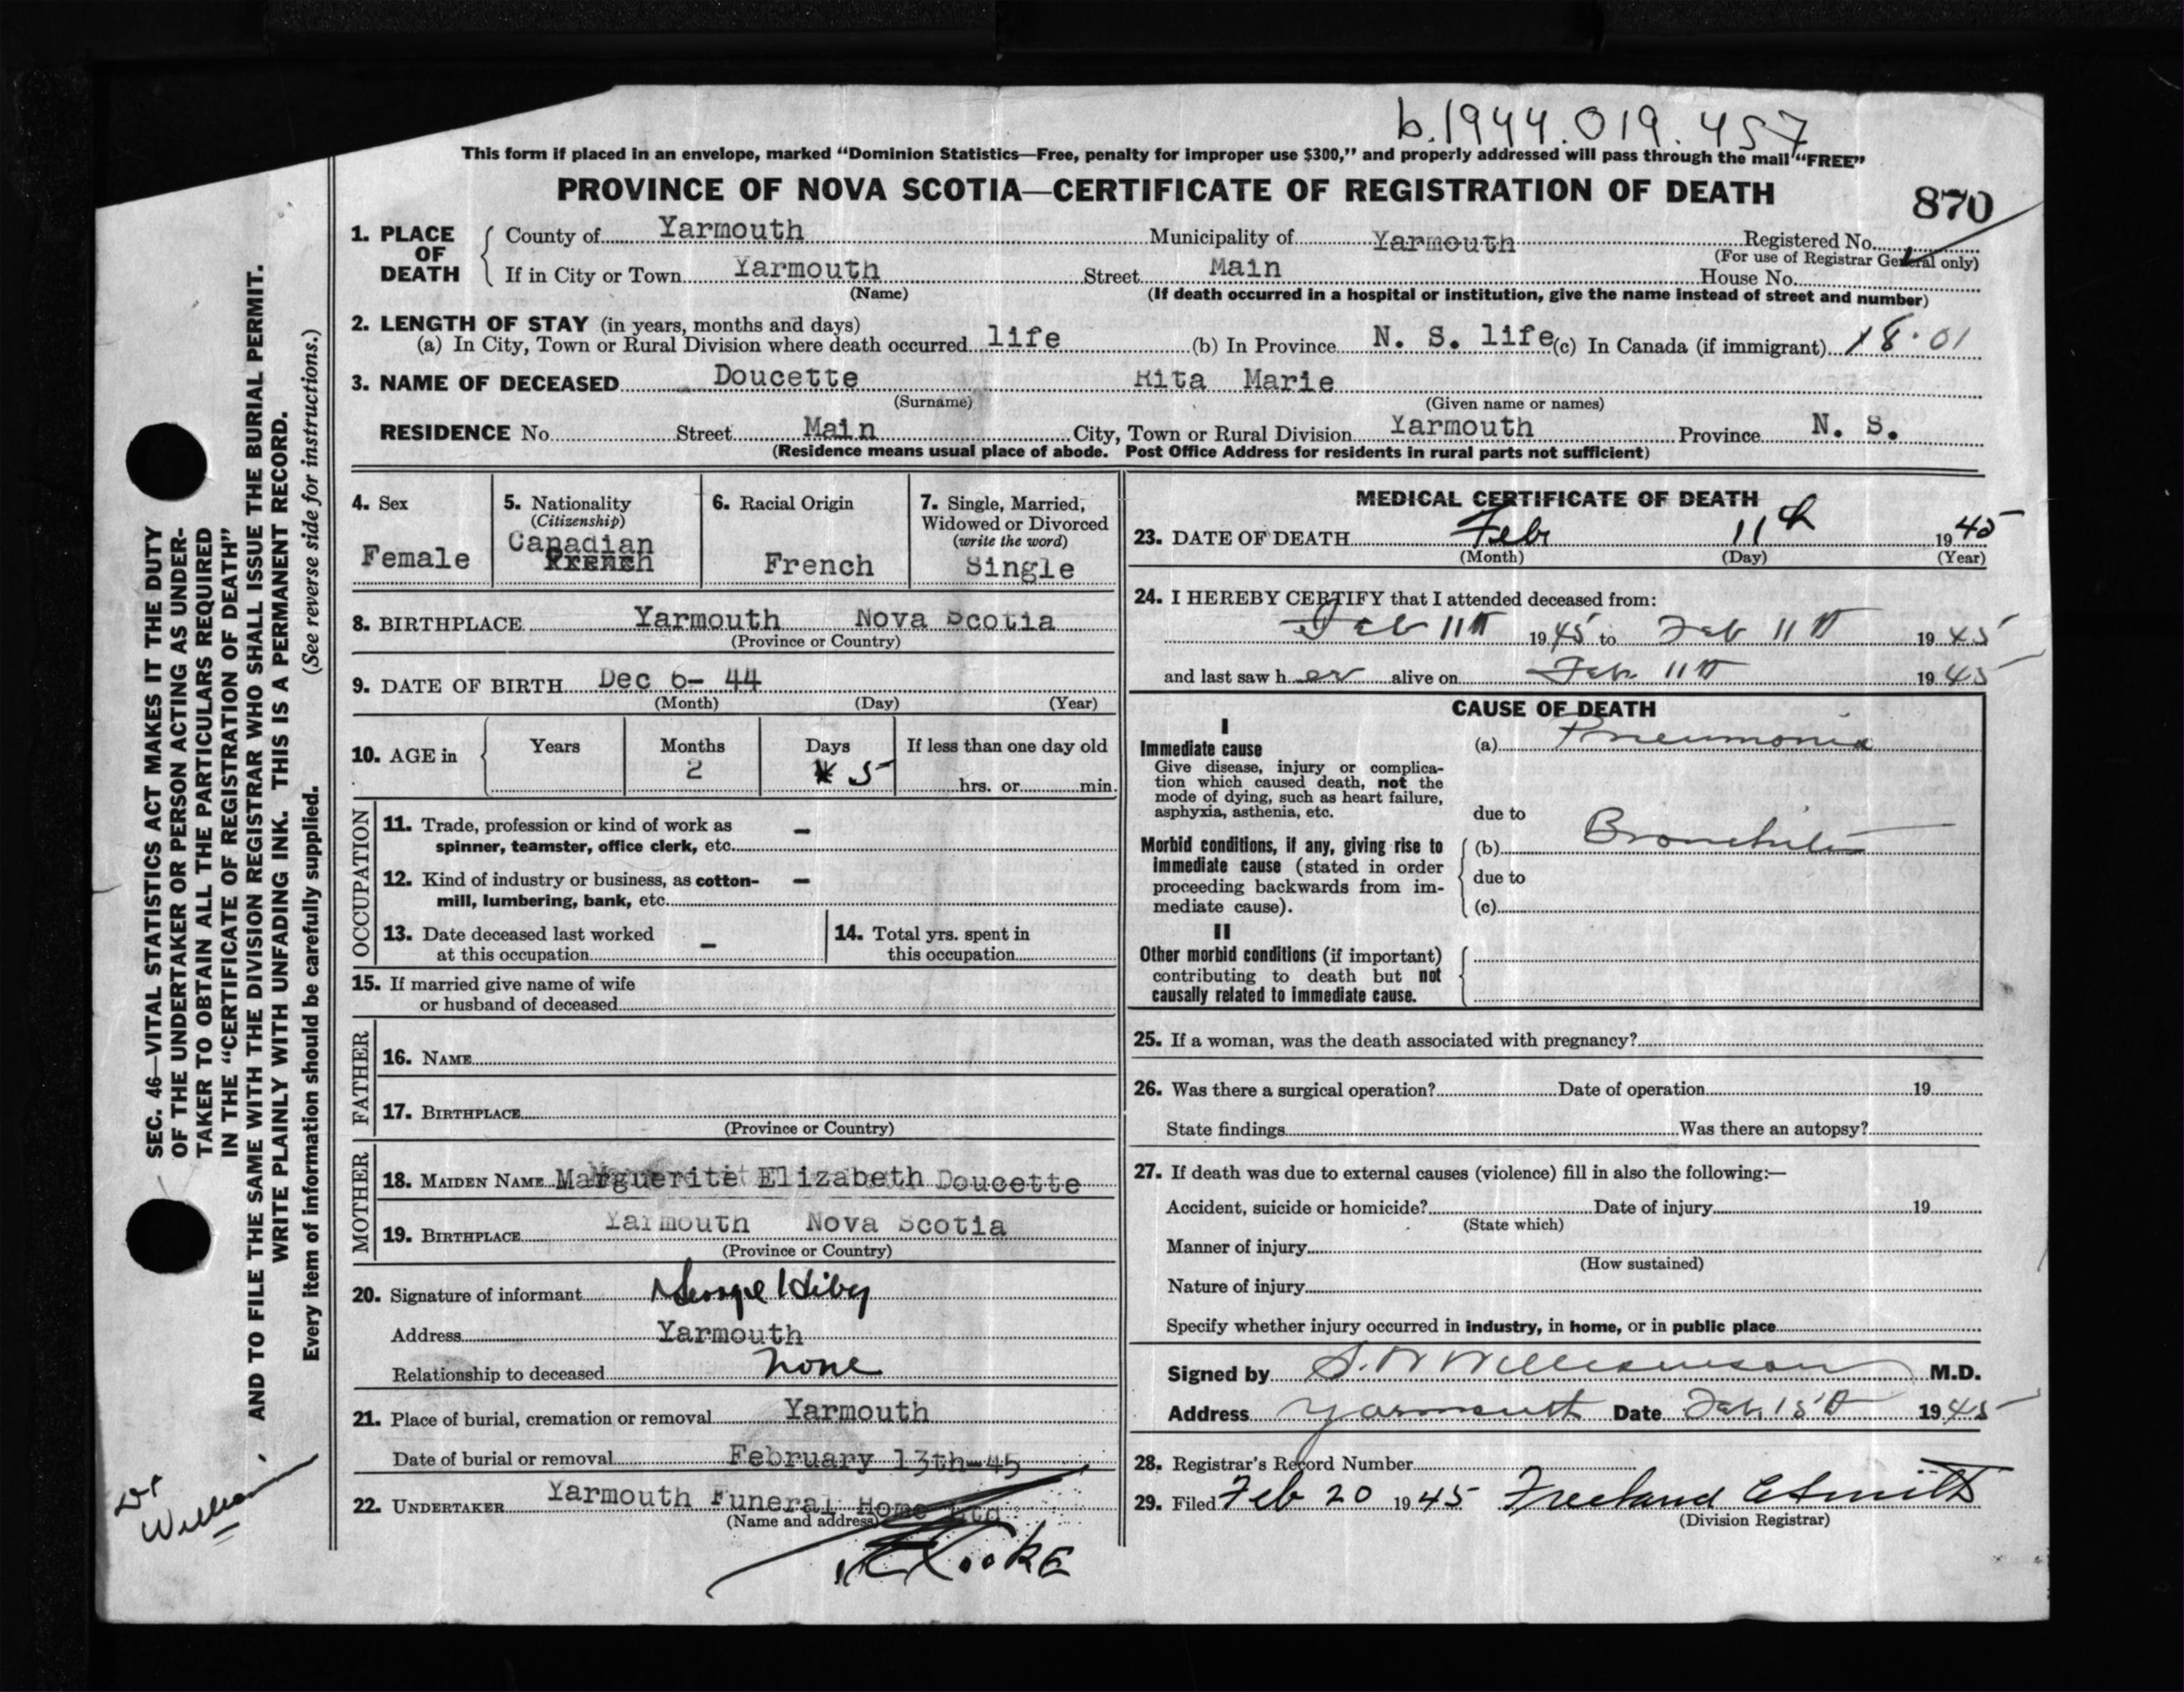 b.1944.019.457
This form if placed in an envelope, marked “Dominion Statistics—Free, penalty for improper use $300,” and properly addressed will pass through the mail “FREE”
PROVINCE OF NOVA SCOTIA—CERTIFICATE OF REGISTRATION OF DEATH
870
1. PLACE OF DEATH
County of Yarmouth Municipality of Yarmouth Registered No.
(For use of Registrar General only)
If in City or Town Yarmouth Street Main House No.
(Name) (If death occurred in a hospital or institution, give the name instead of street and number)
2. LENGTH OF STAY (in years, months and days)
(a) In City, Town or Rural Division where death occurred life (b) In Province N. S. life (c) In Canada (if immigrant) 18.01
3. NAME OF DECEASED Doucette Rita Marie
(Surname) (Given name or names)
RESIDENCE No. Street Main City, Town or Rural Division Yarmouth Province N. S.
(Residence means usual place of abode. Post Office Address for residents in rural parts not sufficient)
4. Sex
Female
5. Nationality
(Citizenship)
Canadian
French
6. Racial Origin
French
7. Single, Married,
Widowed or Divorced
(write the word)
Single
8. BIRTHPLACE Yarmouth Nova Scotia
(Province or Country)
9. DATE OF BIRTH Dec 6- 44
(Month) (Day) (Year)
10. AGE in
Years
Months
2
Days
5
If less than one day old
hrs. or min.
OCCUPATION
11. Trade, profession or kind of work as
spinner, teamster, office clerk, etc. –
12. Kind of industry or business, as cotton-
mill, lumbering, bank, etc. –
13. Date deceased last worked
at this occupation –
14. Total yrs. spent in
this occupation
15. If married give name of wife
or husband of deceased
FATHER
16. NAME
17. BIRTHPLACE
(Province or Country)
MOTHER
18. MAIDEN NAME Marguerite Elizabeth Doucette
19. BIRTHPLACE Yarmouth Nova Scotia
(Province or Country)
20. Signature of informant George
Address Yarmouth
Relationship to deceased none
21. Place of burial, cremation or removal Yarmouth
Date of burial or removal February 13th-45
22. UNDERTAKER Yarmouth Funeral Home Ltd
(Name and address)
MEDICAL CERTIFICATE OF DEATH
23. DATE OF DEATH Feb 11th 1945
(Month) (Day) (Year)
24. I HEREBY CERTIFY that I attended deceased from:
Feb 11th 1945 to Feb 11th 1945
and last saw her alive on Feb 11th 1945
CAUSE OF DEATH
I
Immediate cause
Give disease, injury or complica-
tion which caused death, not the
mode of dying, such as heart failure,
asphyxia, asthenia, etc.
(a) Pneumonia
due to
Morbid conditions, if any, giving rise to
immediate cause (stated in order
proceeding backwards from im-
mediate cause).
(b) Bronchitis
due to
(c)
II
Other morbid conditions (if important)
contributing to death but not
causally related to immediate cause.
25. If a woman, was the death associated with pregnancy?
26. Was there a surgical operation? Date of operation 19
State findings Was there an autopsy?
27. If death was due to external causes (violence) fill in also the following:—
Accident, suicide or homicide? Date of injury 19
(State which)
Manner of injury
(How sustained)
Nature of injury
Specify whether injury occurred in industry, in home, or in public place
Signed by S. W Williamson M.D.
Address Yarmouth Date Feb. 15th 1945
28. Registrar's Record Number
29. Filed Feb 20 1945 Freeland
(Division Registrar)
SEC. 46—VITAL STATISTICS ACT MAKES IT THE DUTY
OF THE UNDERTAKER OR PERSON ACTING AS UNDER-
TAKER TO OBTAIN ALL THE PARTICULARS REQUIRED
IN THE “CERTIFICATE OF REGISTRATION OF DEATH”
AND TO FILE THE SAME WITH THE DIVISION REGISTRAR WHO SHALL ISSUE THE BURIAL PERMIT.
WRITE PLAINLY WITH UNFADING INK. THIS IS A PERMANENT RECORD.
Every item of information should be carefully supplied. (See reverse side for instructions.)
Dr